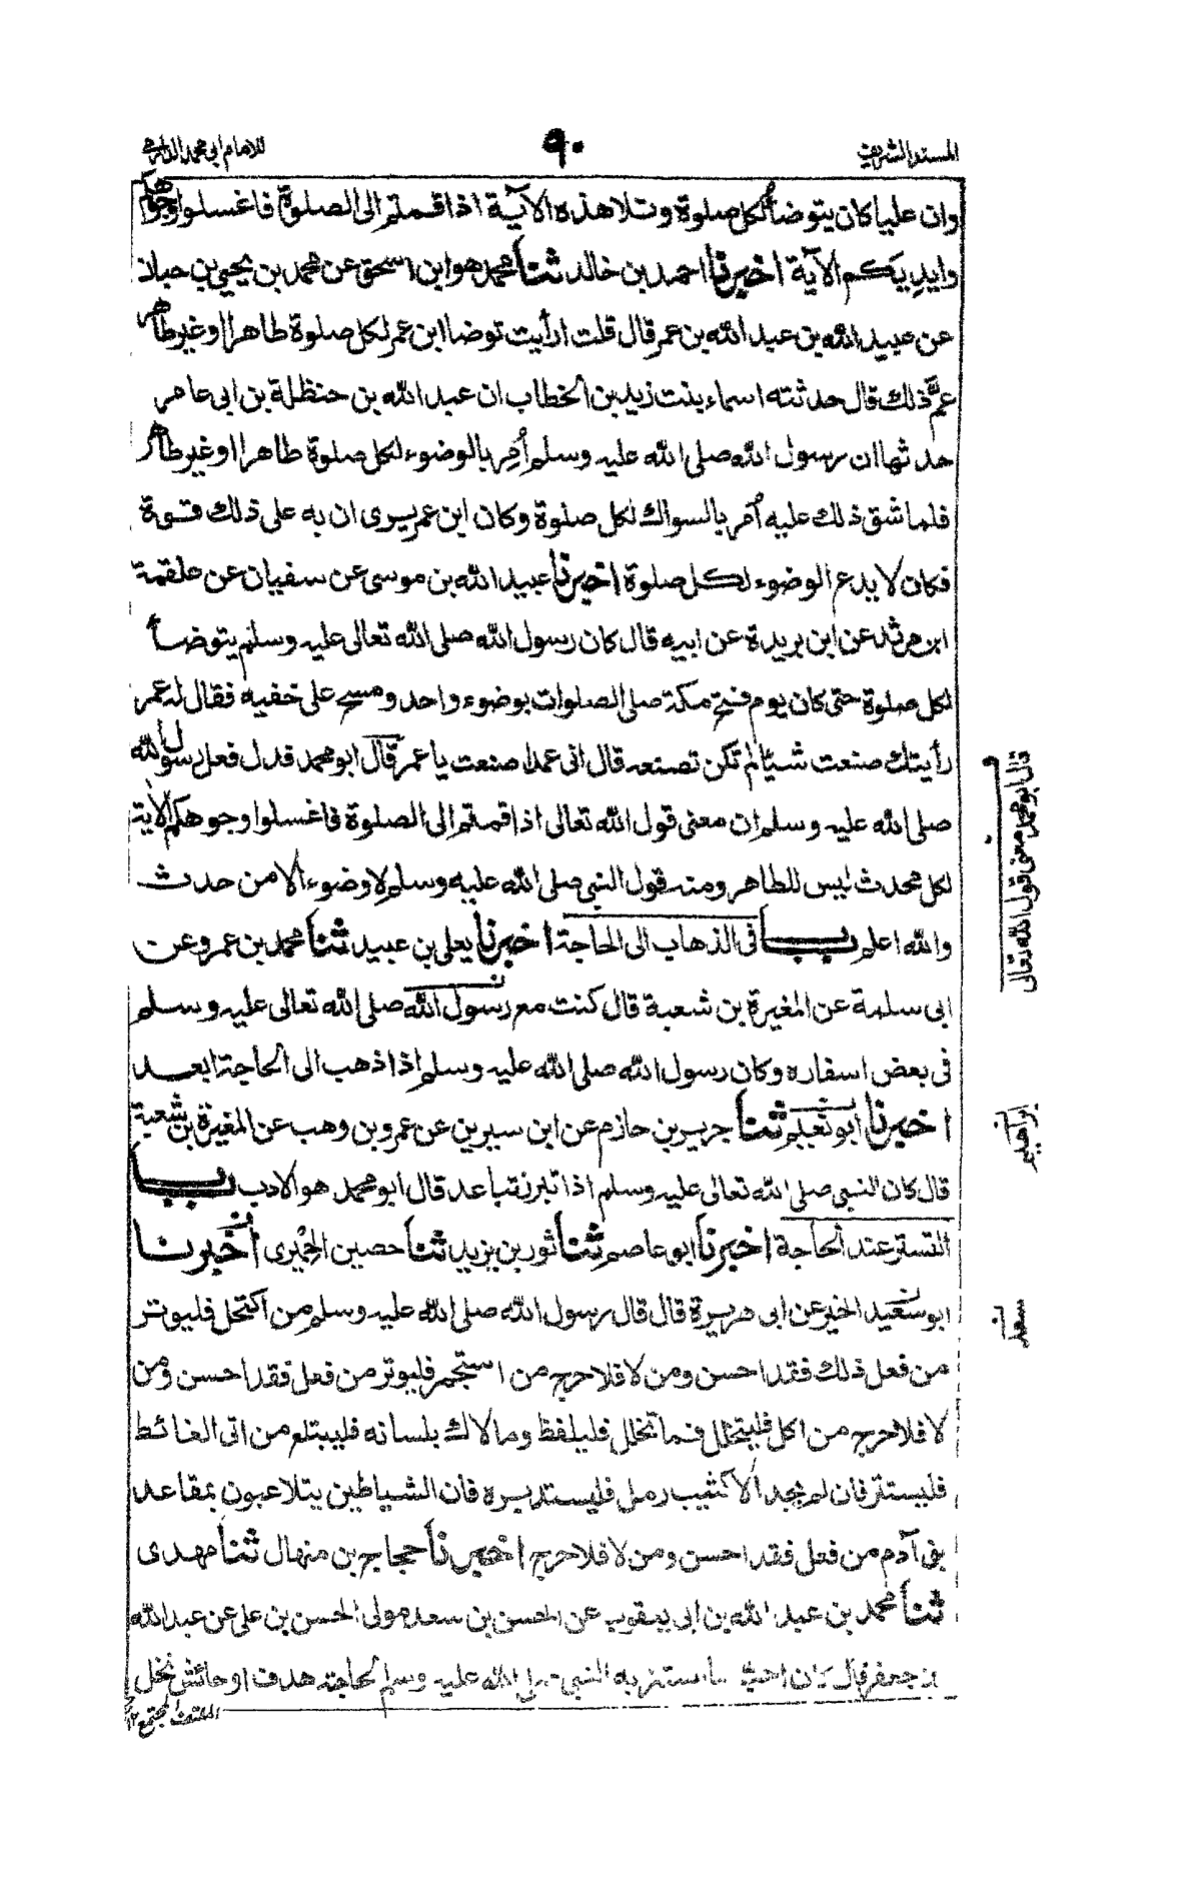 المسند الشريف
٩٠
للامام ابي محمد الدارمي
وان عليا كان يتوضأ لكل صلوة وتلا هذه الآية اذا قمتم الى الصلوة فاغسلوا وجوهكم
وايديكم الآية اخبرنا احمد بن خالد ثنا محمد هو ابن اسحق عن محمد بن يحيى بن حبان
عن عبيد الله بن عبد الله بن عمر قال قلت ارأيت توضا ابن عمر لكل صلوة طاهرا او غير طاهر
عم ذلك قال حدثته اسماء بنت زيد بن الخطاب ان عبد الله بن حنظلة بن ابى عامر
حدثها ان رسول الله صلى الله عليه وسلم أُمِر بالوضوء لكل صلوة طاهرا او غير طاهر
فلما شق ذلك عليه أُمر بالسواك لكل صلوة وكان ابن عمر يرى ان به على ذلك قوة
فكان لا يدع الوضوء لكل صلوة اخبرنا عبيد الله بن موسى عن سفيان عن علقمة
ابن مرثد عن ابن بريدة عن ابيه قال كان رسول الله صلى الله تعالى عليه وسلم يتوضأ
لكل صلوة حتى كان يوم فتح مكة صلى الصلوات بوضوء واحد ومسح على خفيه فقال له عمر
رأيتك صنعت شيئا لم تكن تصنعه قال انى عمدا صنعت يا عمر قال ابو محمد فدل فعل رسول الله
صلى الله عليه وسلم ان معنى قول الله تعالى اذا قمتم الى الصلوة فاغسلوا وجوهكم الآية
لكل محدث ليس للطاهر ومنه قول النبي صلى الله عليه وسلم لا وضوء الا من حدث
والله اعلم باب فى الذهاب الى الحاجة اخبرنا يعلى بن عبيد ثنا محمد بن عمرو عن
ابى سلمة عن المغيرة بن شعبة قال كنت مع رسول الله صلى الله تعالى عليه وسلم
فى بعض اسفاره وكان رسول الله صلى الله عليه وسلم اذا ذهب الى الحاجة ابعد
اخبرنا ابو نعيم ثنا جرير بن حازم عن ابن سيرين عن عمرو بن وهب عن المغيرة بن شعبة
قال كان النبي صلى الله تعالى عليه وسلم اذا تبرز تباعد قال ابو محمد هو الادب باب
التستر عند الحاجة اخبرنا ابو عاصم ثنا ثور بن يزيد ثنا حصين الحميرى اخبرنا
ابو سعيد الخير عن ابى هريرة قال قال رسول الله صلى الله عليه وسلم من اكتحل فليوتر
من فعل ذلك فقد احسن ومن لا فلا حرج من استجمر فليوتر من فعل فقد احسن ومن
لا فلا حرج من اكل فليتخلل فما تخلل فليلفظ وما لاك بلسانه فليبتلع من اتى الغائط
فليستتر فان لم يجد الا كثيب رمل فليستدبره فان الشياطين يتلاعبون بمقاعد
بنى آدم من فعل فقد احسن ومن لا فلا حرج اخبرنا حجاج بن منهال ثنا مهدى
ثنا محمد بن عبد الله بن ابى يعقوب عن الحسن بن سعد مولى الحسن بن على عن عبد الله
بن جعفر قال كان احب ما استتر به النبي صلى الله عليه وسلم لحاجته هدف او حائش نخل
الملتف المجتمع ١٢
قال ابو محمد معنى قول الله تعالى
ابراهيم
سعد